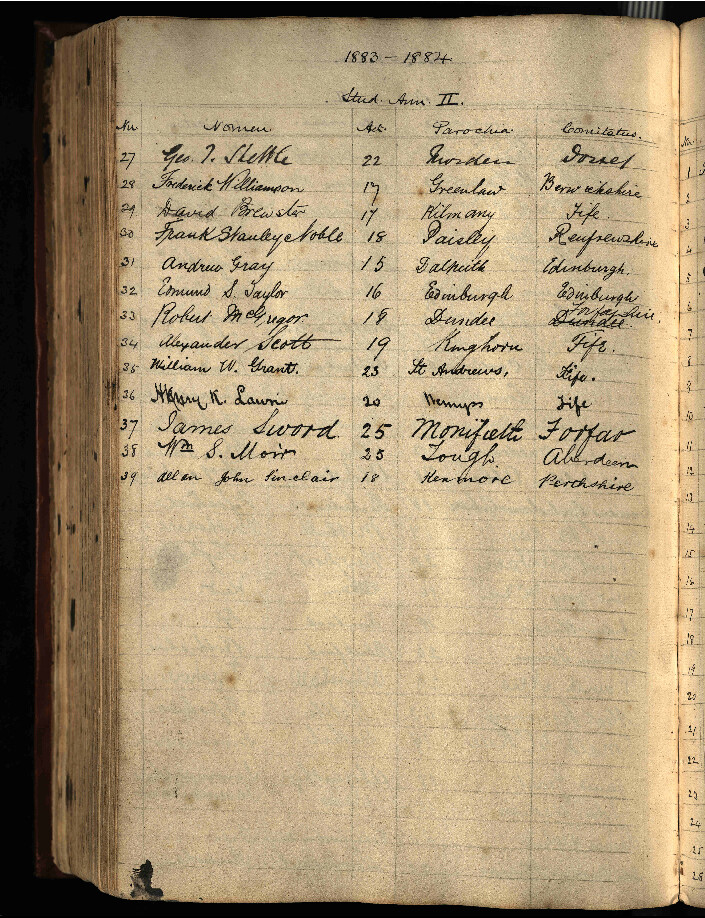 1883 - 1884
Stud. Ann. II.
Nu. Nomen Aet. Parochia Comitatus.
27 Geo. T. Shettle 22 Morden Dorset
28 Frederick Williamson 17 Greenlaw Berwickshire
29 David Brewster 17 Kilmany Fife.
30 Frank Stanley Noble 18 Paisley Renfrewshire
31 Andrew Gray 15 Dalkeith Edinburgh.
32 Edmund S. Taylor 16 Edinburgh Edinburgh
Forfarshire.
33 Robert McGregor 18 Dundee Dundee.
34 Alexander Scott 19 Kinghorn Fife.
35 William W. Grant. 23 St Andrews, Fife.
36 Henry K. 20 Wemyss Fife
37 James Sword 25 Monifieth Forfar
38 Wm S. Moir 25 Tough. Aberdeen
39 Allan John Sinclair 18 Kenmore Perthshire